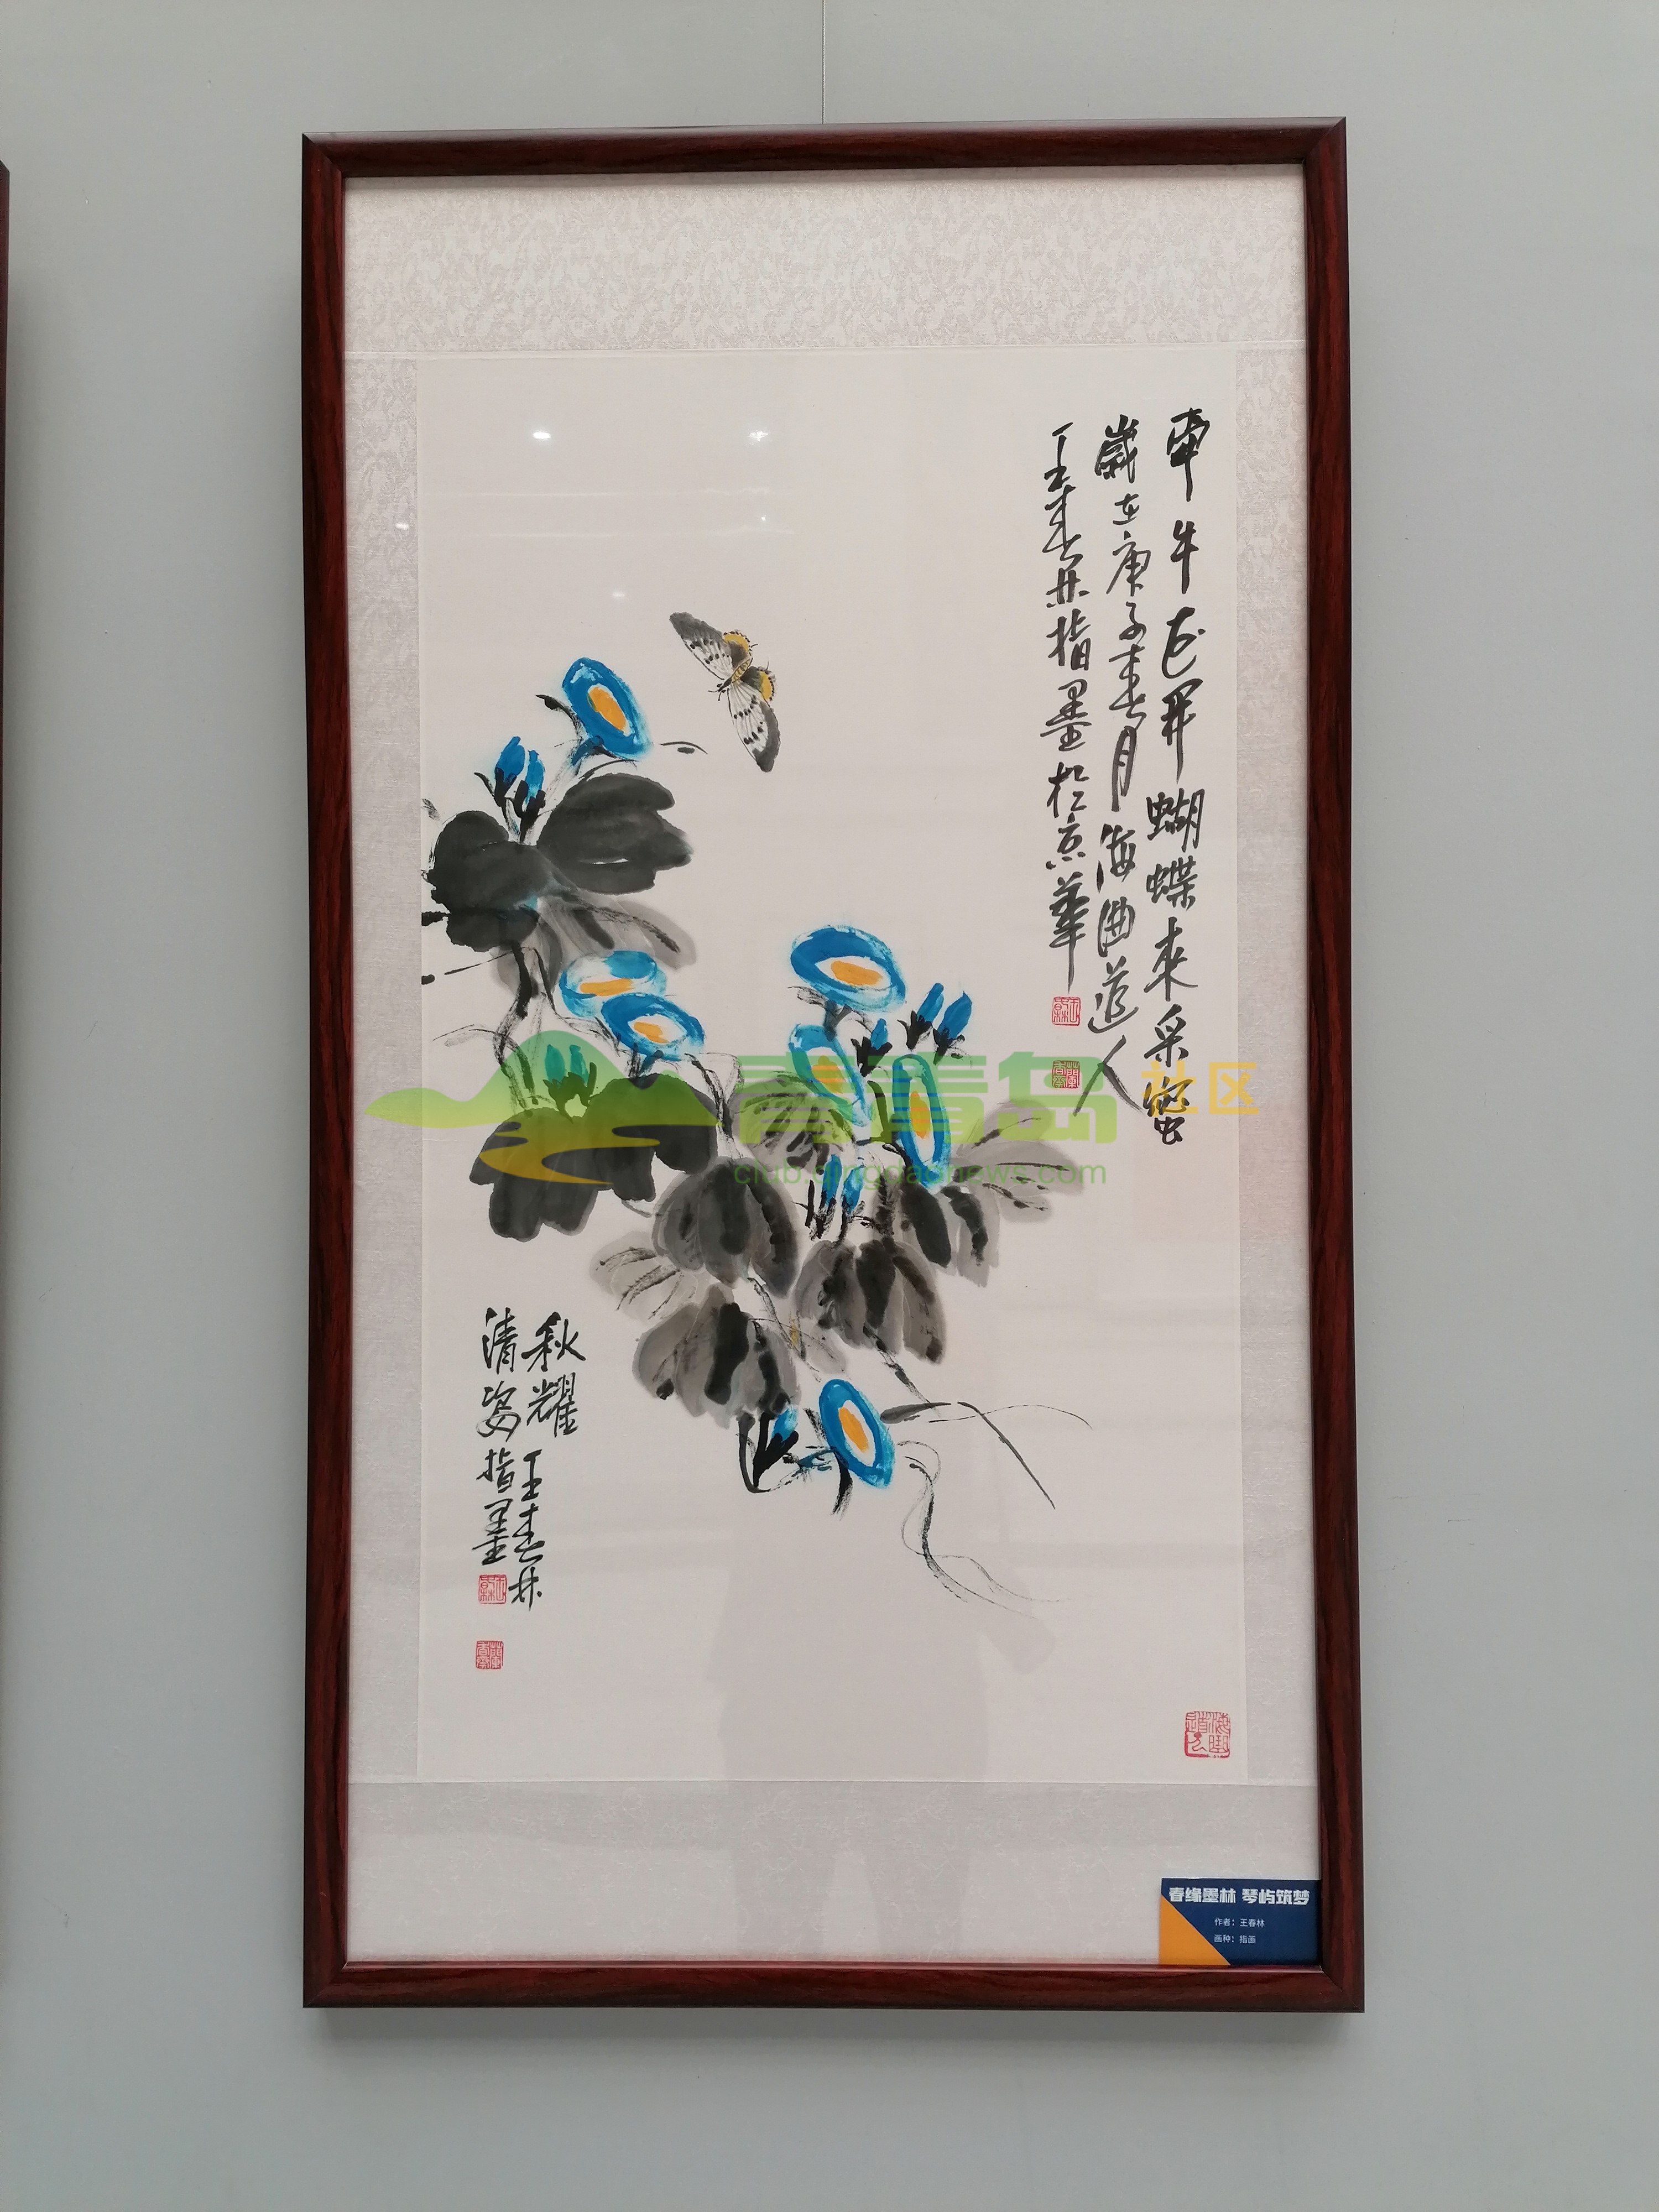 牽牛花開蝴蝶来采蜜
歲在庚子春月海曲道人
王春林指墨於京華
秋耀
清姿
王春林
指墨
青青岛
社区
club.qingdaonews.com
春缘墨林 琴屿筑梦
作者：王春林
画种：指画